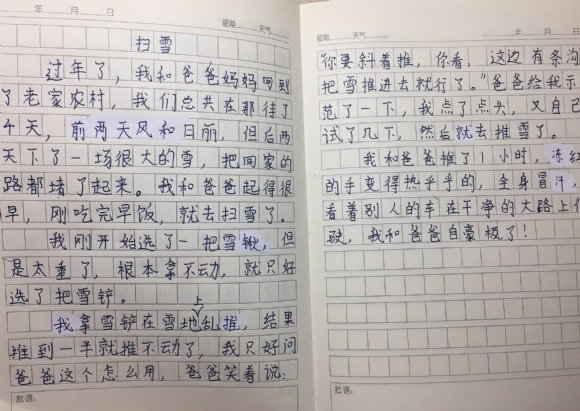 年 月 日 星期 天气
扫雪
过年了，我和爸爸妈妈回到
了老家农村，我们总共在那待了
4天，前两天风和日丽，但后两
天下了一场很大的雪，把回家的
路都堵了起来。我和爸爸起得很
早，刚吃完早饭，就去扫雪了。
我刚开始选了一把雪锹，但
是太重了，根本拿不动，就只好
选了把雪铲。
我拿雪铲在雪地上乱推，结果
推到一半就推不动了，我只好问
爸爸这个怎么用，爸爸笑着说：
批语：
年 月 日 星期 天气
“你要斜着推，你看，这边有条沟
把雪推进去就行了。”爸爸给我示
范了一下，我点了点头，又自己
试了几下，然后就去推雪了。
我和爸爸推了1小时，冻红
的手变得热乎乎的，全身冒汗，
看着别人的车在干净的大路上行
驶，我和爸爸自豪极了！
批语：